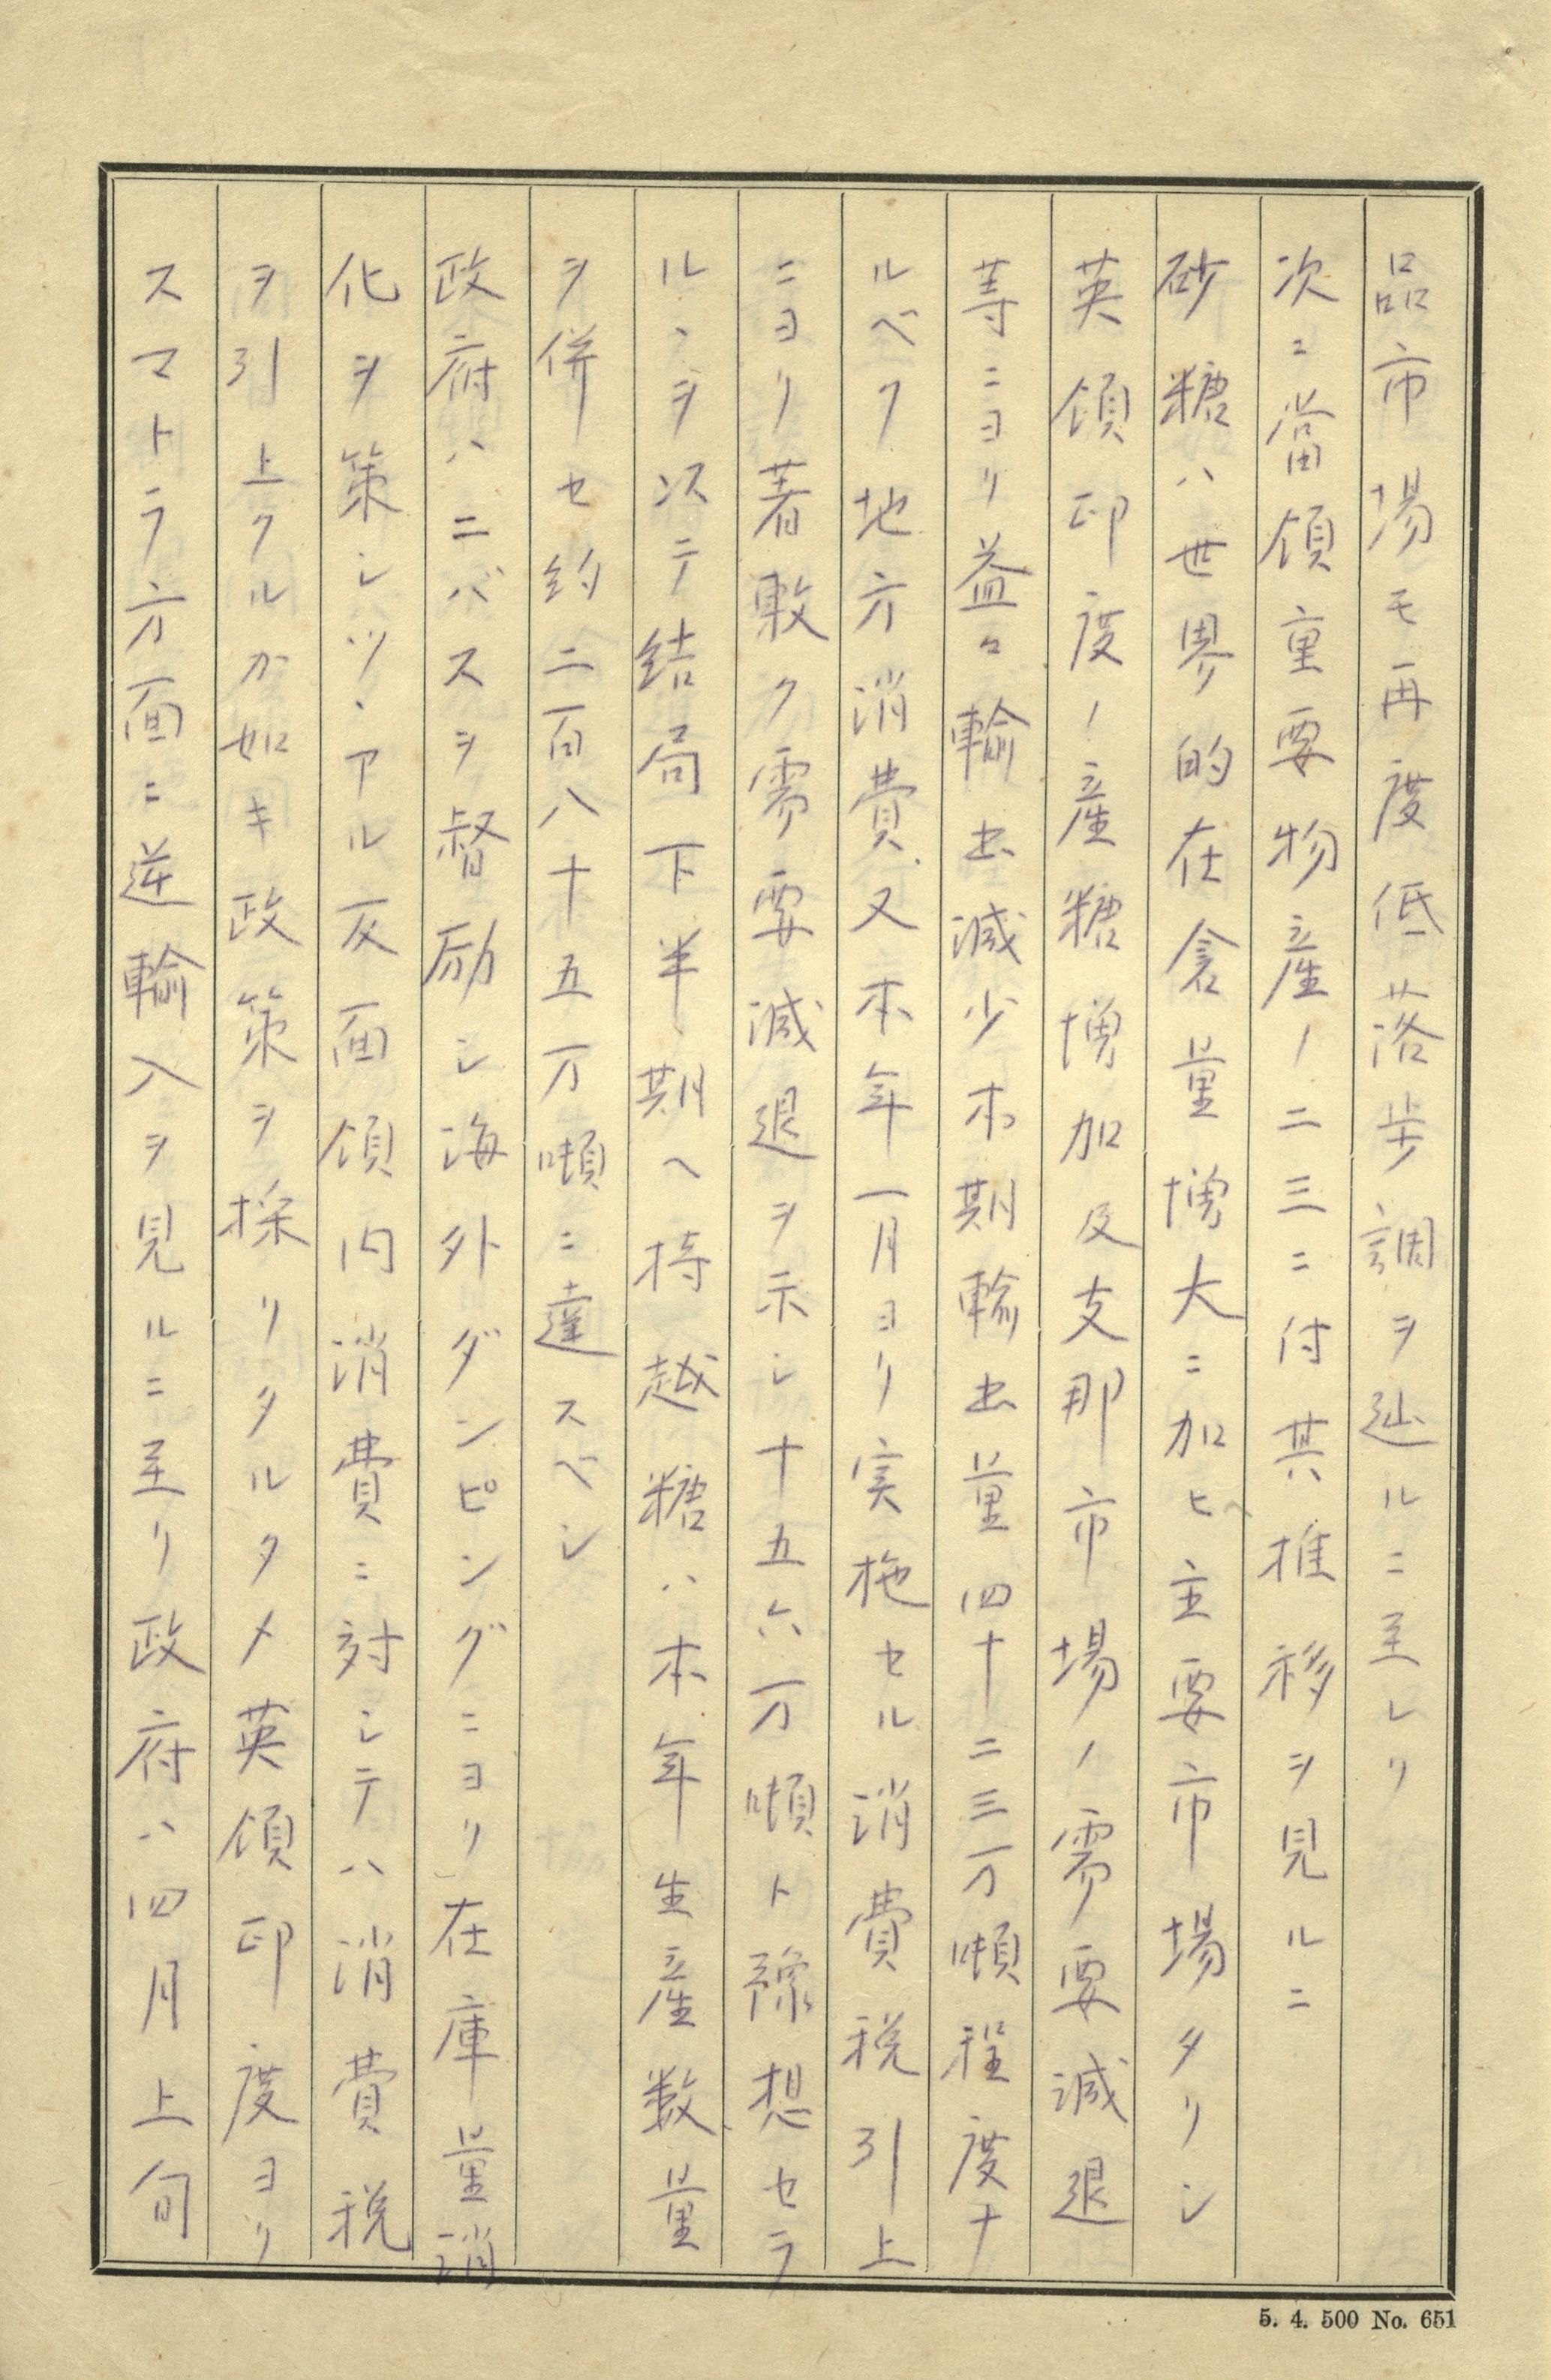 品市場モ再度低落歩調ヲ辿ルニ至レリ
次ニ當領重要物産ノ二三ニ付其推移ヲ見ルニ
砂糖ハ世界的在倉量増大ニ加ヒ主要市場タリシ
英領印度ノ産糖増加及支那市場ノ需要減退
等ニヨリ益々輸出減少本期輸出量四十二三万噸程度ナ
ルベク地方消費又本年一月ヨリ実施セル消費税引上
ニヨリ著敷ク需要減退ヲ示シ十五六万噸ト豫想セラ
ルヽヲ以テ結局下半期ヘ持越糖ハ本年生産数量
ヲ併セ約二百八十五万噸ニ達スベシ
政府ハニバスヲ督励シ海外ダンピングニヨリ在庫量消
化ヲ策シツヽアル反面領内消費ニ対シテハ消費税
ヲ引上クルカ如キ政策ヲ採リタルタメ英領印度ヨリ
スマトラ方面ニ逆輸入ヲ見ルニ至リ政府ハ四月上旬
5. 4. 500 No. 651